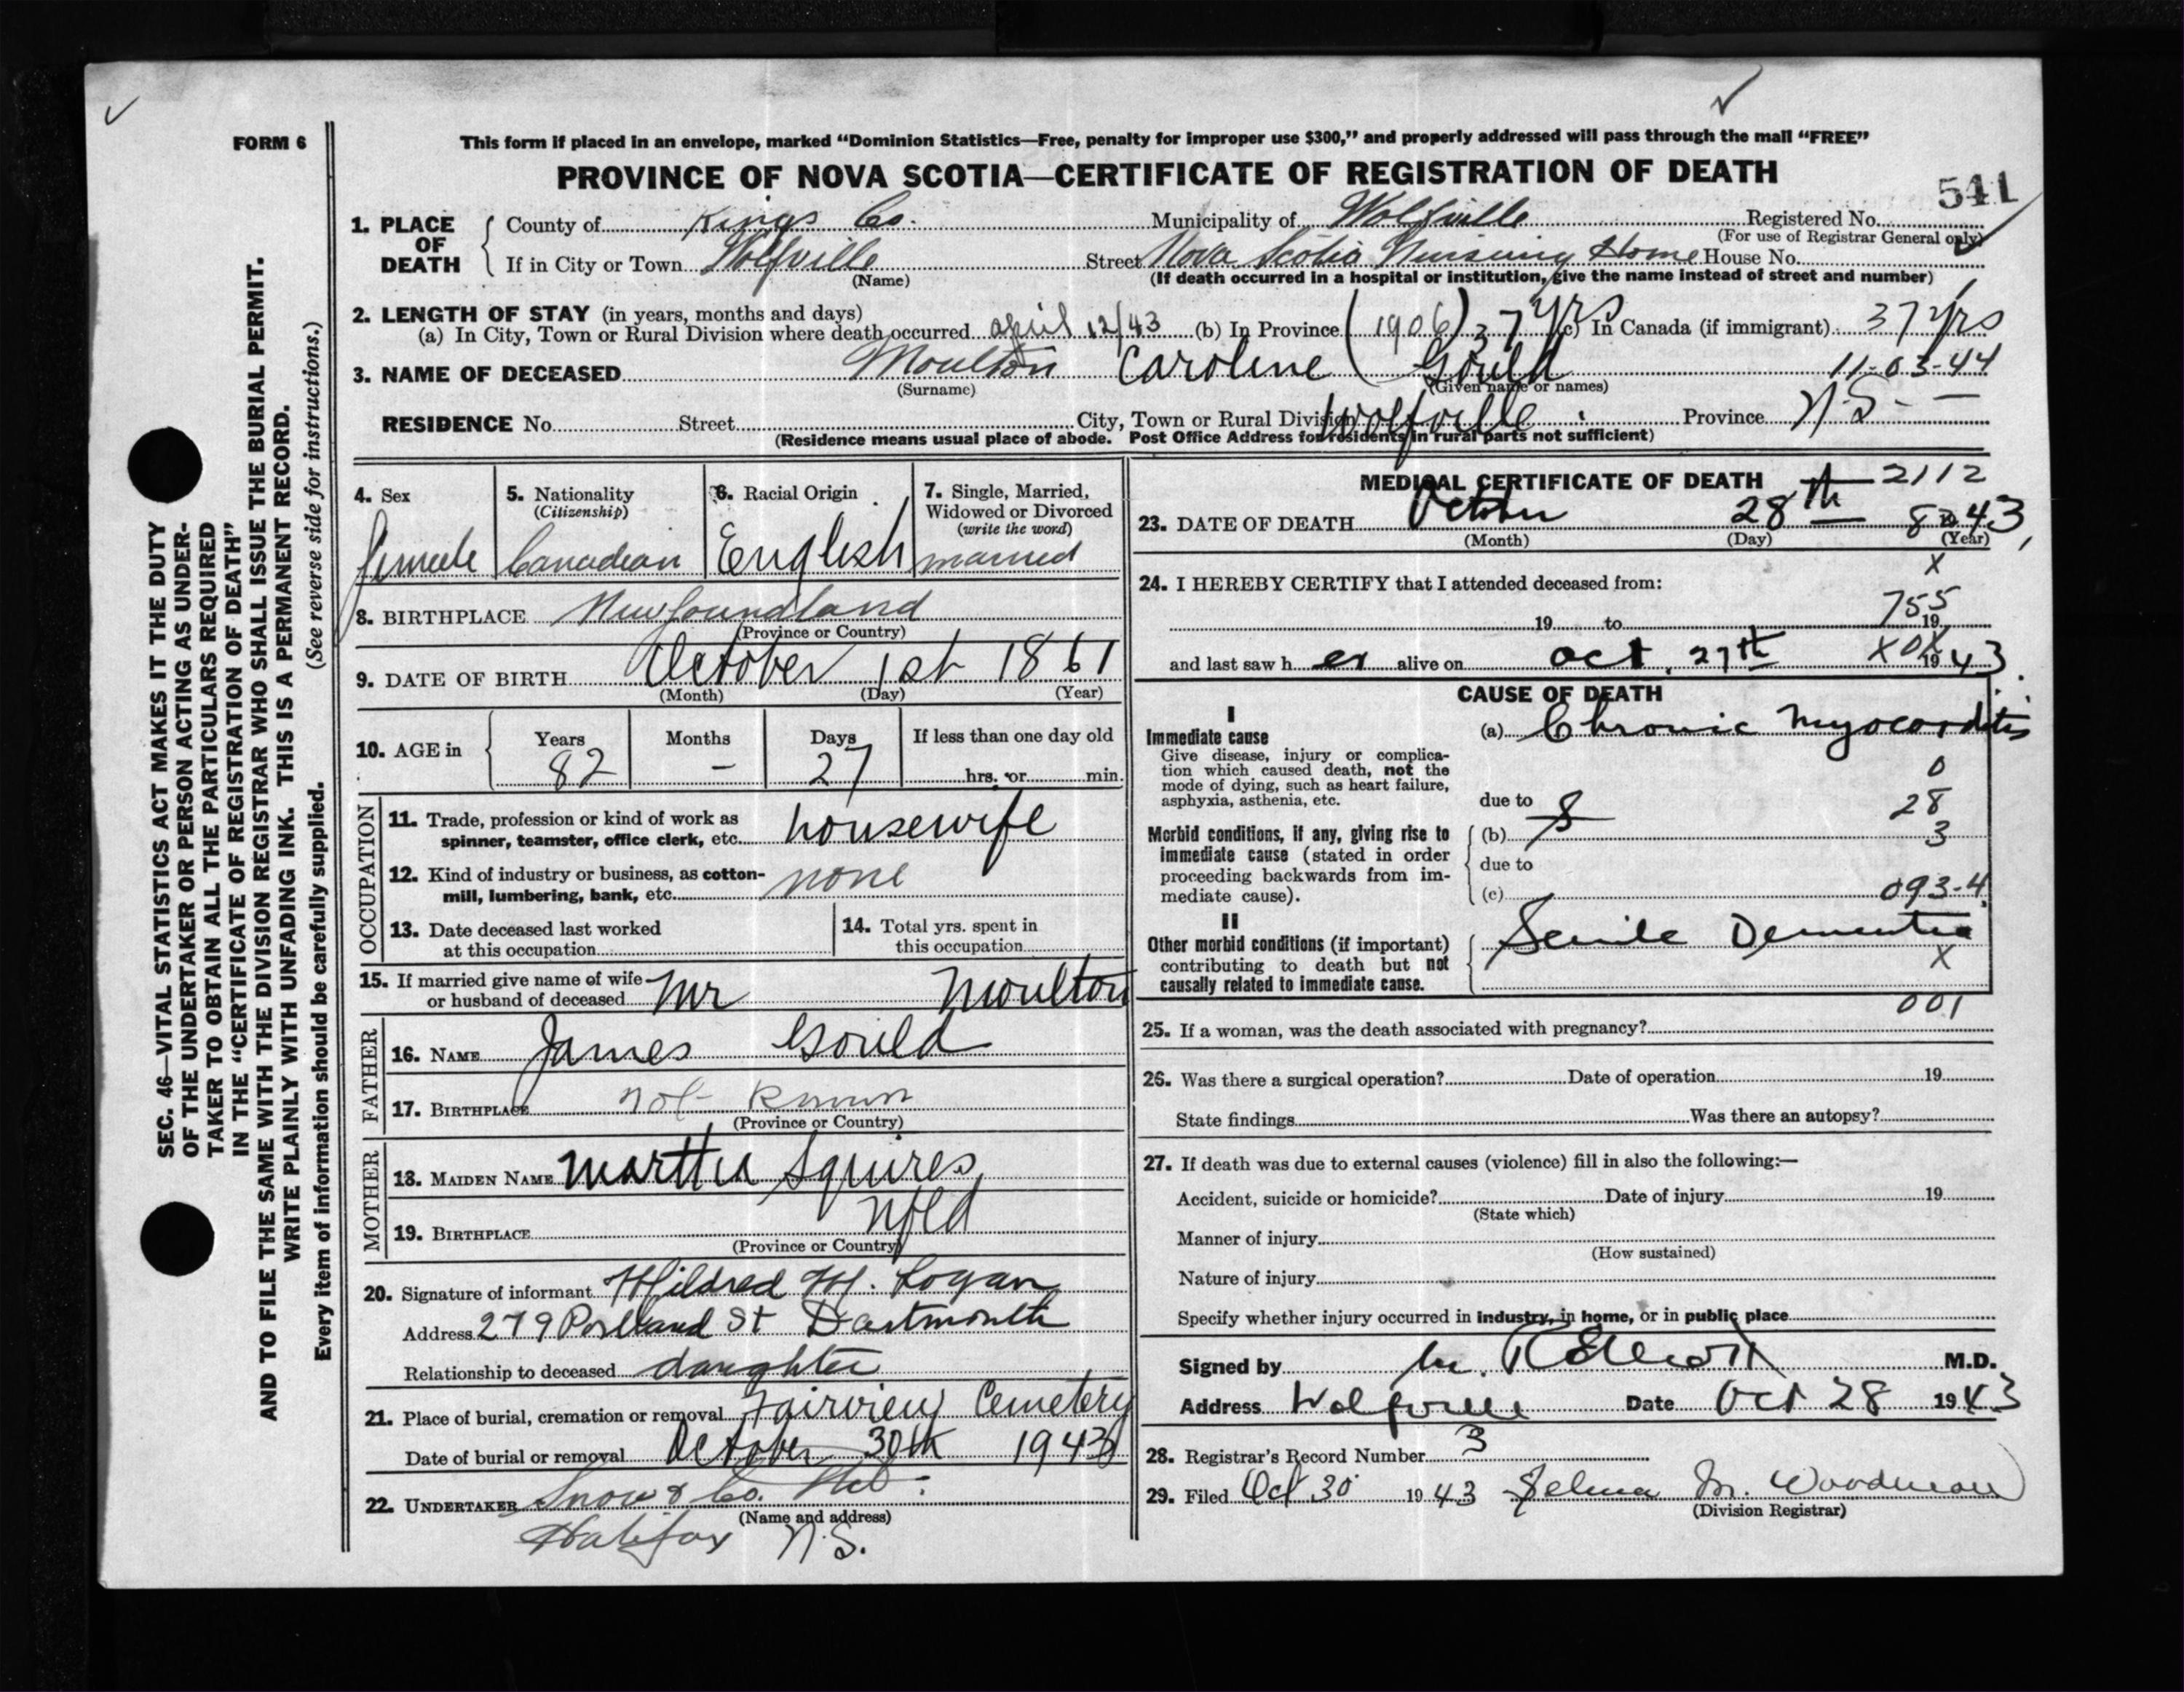 FORM 6
This form if placed in an envelope, marked “Dominion Statistics—Free, penalty for improper use $300,” and properly addressed will pass through the mail “FREE”
PROVINCE OF NOVA SCOTIA—CERTIFICATE OF REGISTRATION OF DEATH
541
1. PLACE OF DEATH County of Kings Co. Municipality of Wolfville Registered No.
(For use of Registrar General only)
If in City or Town Wolfville Street Nova Scotia Nursing Home House No.
(Name) (If death occurred in a hospital or institution, give the name instead of street and number)
2. LENGTH OF STAY (in years, months and days)
(a) In City, Town or Rural Division where death occurred april 12/43 (b) In Province (1906) 37 yrs (c) In Canada (if immigrant) 37 yrs
3. NAME OF DECEASED Moulton Caroline (Gould 11-03-44
(Surname) (Given name or names)
RESIDENCE No. Street City, Town or Rural Division Wolfville Province N.S. —
(Residence means usual place of abode. Post Office Address for residents in rural parts not sufficient)
4. Sex 5. Nationality 6. Racial Origin 7. Single, Married,
(Citizenship) Widowed or Divorced
(write the word)
female Canadian English married
8. BIRTHPLACE Newfoundland
(Province or Country)
9. DATE OF BIRTH October 1st 1861
(Month) (Day) (Year)
10. AGE in Years Months Days If less than one day old
82 – 27 hrs. or min.
OCCUPATION
11. Trade, profession or kind of work as
spinner, teamster, office clerk, etc. housewife
12. Kind of industry or business, as cotton-
mill, lumbering, bank, etc. none
13. Date deceased last worked 14. Total yrs. spent in
at this occupation this occupation
15. If married give name of wife
or husband of deceased Mr Moulton
FATHER
16. NAME James Gould
17. BIRTHPLACE not known
(Province or Country)
MOTHER
18. MAIDEN NAME Martha Squires
19. BIRTHPLACE Nfld
(Province or Country)
20. Signature of informant Mildred M. Logan
Address 279 Portland St Dartmouth
Relationship to deceased daughter
21. Place of burial, cremation or removal Fairview Cemetery
Date of burial or removal October 30th 1943
22. UNDERTAKER Snow & Co. Ltd.
(Name and address)
Halifax N.S.
MEDICAL CERTIFICATE OF DEATH 2112
23. DATE OF DEATH October 28th 43
(Month) (Day) (Year)
X
24. I HEREBY CERTIFY that I attended deceased from:
755
19 to 19
and last saw her alive on Oct. 27th X0X 1943
CAUSE OF DEATH
I
Immediate cause (a) Chronic myocarditis
Give disease, injury or complica-
tion which caused death, not the 0
mode of dying, such as heart failure,
asphyxia, asthenia, etc. due to 28
Morbid conditions, if any, giving rise to (b) 3
immediate cause (stated in order due to
proceeding backwards from im-
mediate cause). (c) 093-4
II
Other morbid conditions (if important) Senile Dementia
contributing to death but not X
causally related to immediate cause.
001
25. If a woman, was the death associated with pregnancy?
26. Was there a surgical operation? Date of operation 19
State findings Was there an autopsy?
27. If death was due to external causes (violence) fill in also the following:—
Accident, suicide or homicide? Date of injury 19
(State which)
Manner of injury
(How sustained)
Nature of injury
Specify whether injury occurred in industry, in home, or in public place
Signed by M.D.
Address Wolfville Date Oct 28 1943
28. Registrar's Record Number 3
29. Filed Oct 30 1943 Selma M. Woodman
(Division Registrar)
SEC. 46—VITAL STATISTICS ACT MAKES IT THE DUTY
OF THE UNDERTAKER OR PERSON ACTING AS UNDER-
TAKER TO OBTAIN ALL THE PARTICULARS REQUIRED
IN THE “CERTIFICATE OF REGISTRATION OF DEATH”
AND TO FILE THE SAME WITH THE DIVISION REGISTRAR WHO SHALL ISSUE THE BURIAL PERMIT.
WRITE PLAINLY WITH UNFADING INK. THIS IS A PERMANENT RECORD.
Every item of information should be carefully supplied. (See reverse side for instructions.)